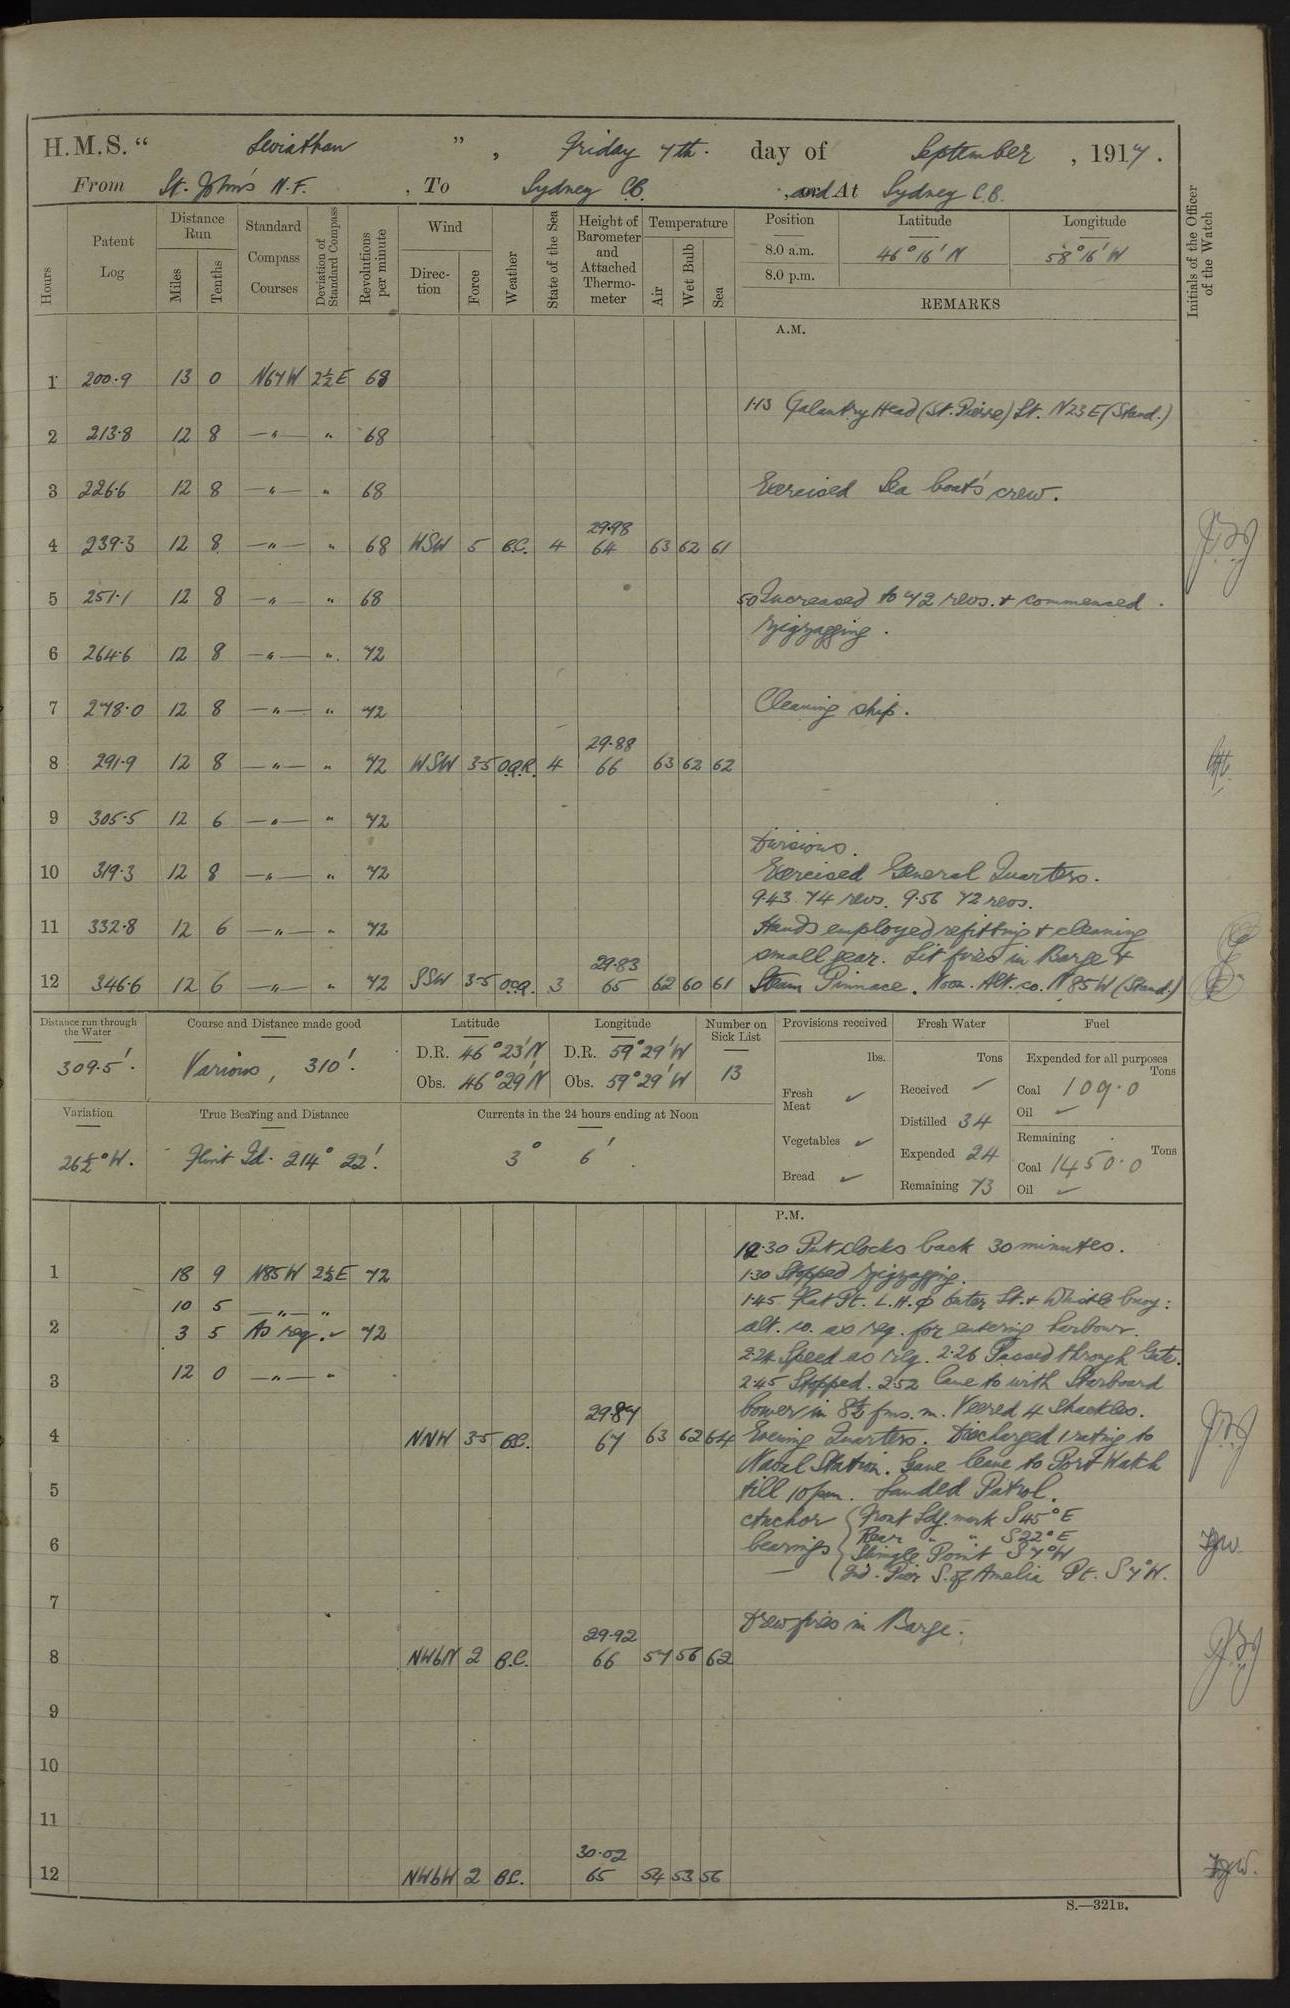 H.M.S. " Leviathan ", Friday 7th. day of September, 1917.
From St. John's N.F., To Sydney C.B., and At Sydney C.B.
Hours
Patent Log
Distance Run
Miles
Tenths
Standard Compass Courses
Deviation of Standard Compass
Revolutions per minute
Wind
Direction
Force
Weather
State of the Sea
Height of Barometer and Attached Thermometer
Temperature
Air
Wet Bulb
Sea
Position Latitude Longitude
8.0 a.m. 46° 16' N 58° 16' W
8.0 p.m.
REMARKS
Initials of the Officer of the Watch
A.M.
1 200.9 13 0 N67W 2½E 68
1.13 Galantry Head (St. Pierre) Lt. N23E (Stand.)
2 213.8 12 8 —"— " 68
3 226.6 12 8 —"— " 68 Exercised Sea boat's crew.
29.98
4 239.3 12 8 —"— " 68 WSW 5 B.C. 4 64 63 62 61
5 251.1 12 8 —"— " 68 50 Increased to 72 revs. & commenced
zigzagging.
6 264.6 12 8 —"— " 72
7 278.0 12 8 —"— " 72 Cleaning ship.
29.88
8 291.9 12 8 —"— " 72 WSW 3-5 O.Q.R. 4 66 63 62 62
9 305.5 12 6 —"— " 72
Divisions.
10 319.3 12 8 —"— " 72 Exercised General Quarters.
9.43 74 revs. 9.56 72 revs.
11 332.8 12 6 —"— " 72 Hands employed refitting & cleaning
small gear. Lit fires in Barge &
29.83
12 346.6 12 6 —"— " 72 SSW 3-5 3 65 62 60 61 Steam Pinnace. Noon. Alt. co. N85W (Stand.)
Distance run through the Water
309.5'.
Course and Distance made good
Various, 310'.
Latitude
D.R. 46° 23' N
Obs. 46° 29' N
Longitude
D.R. 59° 29' W
Obs. 59° 29' W
Number on Sick List
13
Provisions received
lbs.
Fresh Meat ✓
Vegetables ✓
Bread ✓
Fresh Water
Tons
Received ✓
Distilled 34
Expended 24
Remaining 73
Fuel
Expended for all purposes
Tons
Coal 109.0
Oil ✓
Remaining
Tons
Coal 1450.0
Oil ✓
Variation
26½° W.
True Bearing and Distance
Flint Id. 214° 22'.
Currents in the 24 hours ending at Noon
3° 6'.
P.M.
12.30 Put clocks back 30 minutes.
1 18 9 N85W 2½E 72 1.30 Stopped zigzagging.
10 5 —"— " 1.45 Flat Pt. L.H. φ outer Lt. & Whistle buoy:
2 3 5 As req. ✓ 72 alt. co. as req. for entering harbour.
2.24 Speed as req. 2.26 Passed through Gate.
3 12 0 —"— " 2.45 Stopped. 2.52 Came to with Starboard
29.87 bower in 8½ fms. m. Veered 4 shackles.
4 NNW 3-5 B.C. 67 63 62 64 Evening Quarters. Discharged 1 rating to
Naval Station. Gave leave to Port Watch
5 till 10 pm. Landed Patrol.
Anchor bearings { Front Ldg. mark S 45° E
Rear " " S 22° E
6 Shingle Point S 7° W
Pier S. of Amelia Pt. S 7° W.
7
Drew fires in Barge.
29.92
8 NWbN 2 B.C. 66 57 56 62
9
10
11
30.02
12 NWbW 2 B.C. 65 54 53 56
S.—321B.